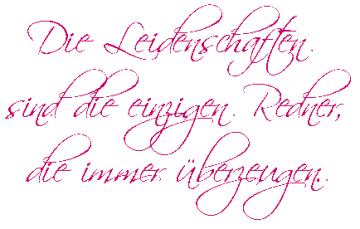 Die Leidenschaften.
sind die einzigen. Redner,
die immer überzeugen..